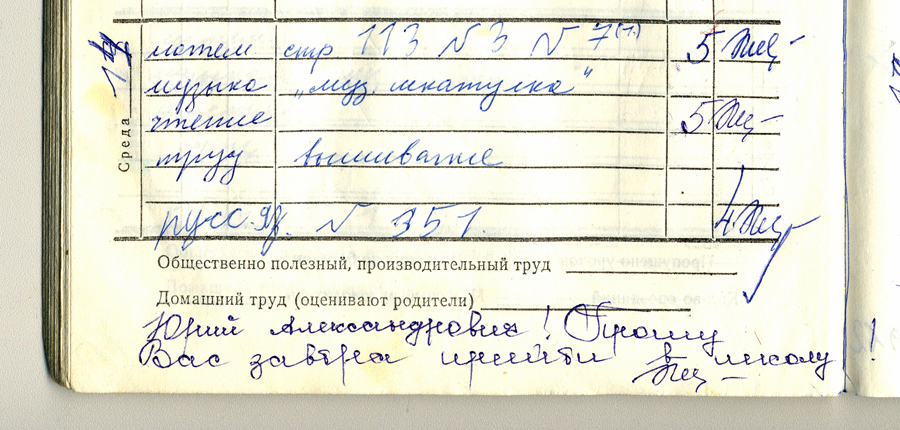 14
Среда
матем стр 113 №3 № 7(1) 5
музыка „муз. шкатулка“
чтение 5
труд вышивание
русс.яз. № 351. 4
Общественно полезный, производительный труд
Домашний труд (оценивают родители)
Юрий Александрович! Прошу
Вас завтра прийти в школу!